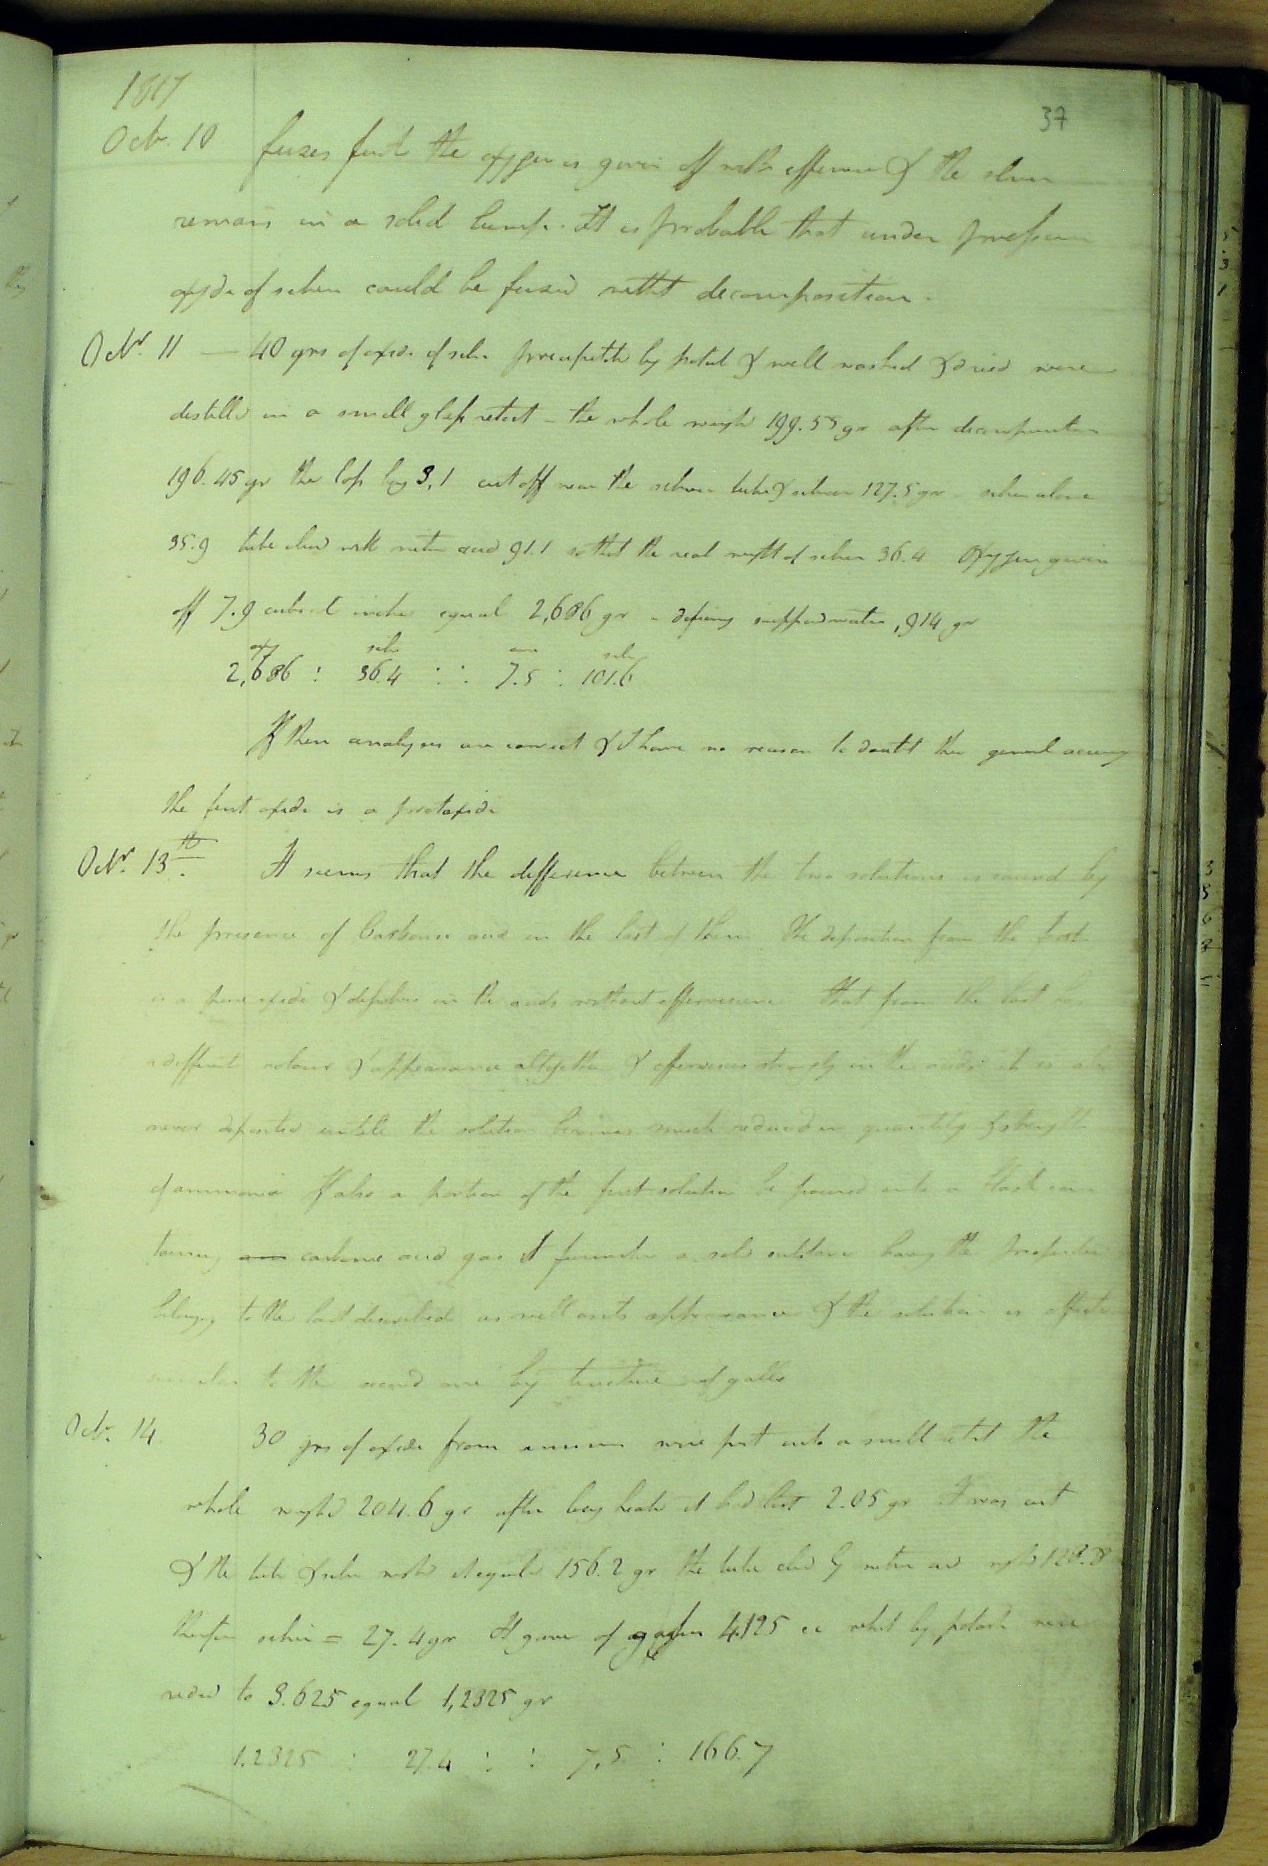 1817
37
Octr. 10 fuzes first the oxygen is given off with effervesce & the silver
remains in a solid lump. It is probable that under pressure
oxide of silver could be fused witht decomposition.
Octr. 11 — 40 grs of oxide of silver precipitated by potash & well washed & dried were
distilled in a small glass retort - the whole weighd 199.55 gr after decomposition
196.45 gr the loss being 3,1 cut off near the silver tube & silver 127.5 gr silver alone
35.9 tube cleaned with nitric acid 91.1 so that the real weight of silver 36.4 Oxygen given
off 7.9 cubical inches equal 2,686 gr - defiency supposed water ,914 gr
oxy silv oxy silv
2,686 : 36.4 : : 7.5 : 101.6
If these analyses are correct & I have no reason to doubt their general accuracy
the first oxide is a protoxide
Octr. 13th. It seems that the difference between the two solutions is caused by
the presence of Carbonic acid in the last of them The deposition from the first
is a pure oxide & dissolves in the acids without effervescence that from the last has
a different colour & appearance altogether & effervesces strongly in the acids it is also
never deposited untill the solution becomes much reduced in quantity & strength
of ammonia If also a portion of the first solution be poured into a flask con
taining carbonic acid gas it forms a solid substance having the properties
belonging to the last described as well as its appearance & the solution is affected
similar to the second one by tincture of galls
Octr. 14. 30 grs of oxide from ammonia were put into a small retort the
whole weighd 204.6 gr after being heated it had lost 2.05 gr It was cut
& the tube & silver weighd equald 156.2 gr the tube cleaned by nitric acid weighd 128.8
therefore silver = 27.4 gr It gave of oxygen 4.125 ci which by potash were
reduced to 3.625 equal 1,2325 gr
1.2325 : 27.4 : : 7.5 : 166.7